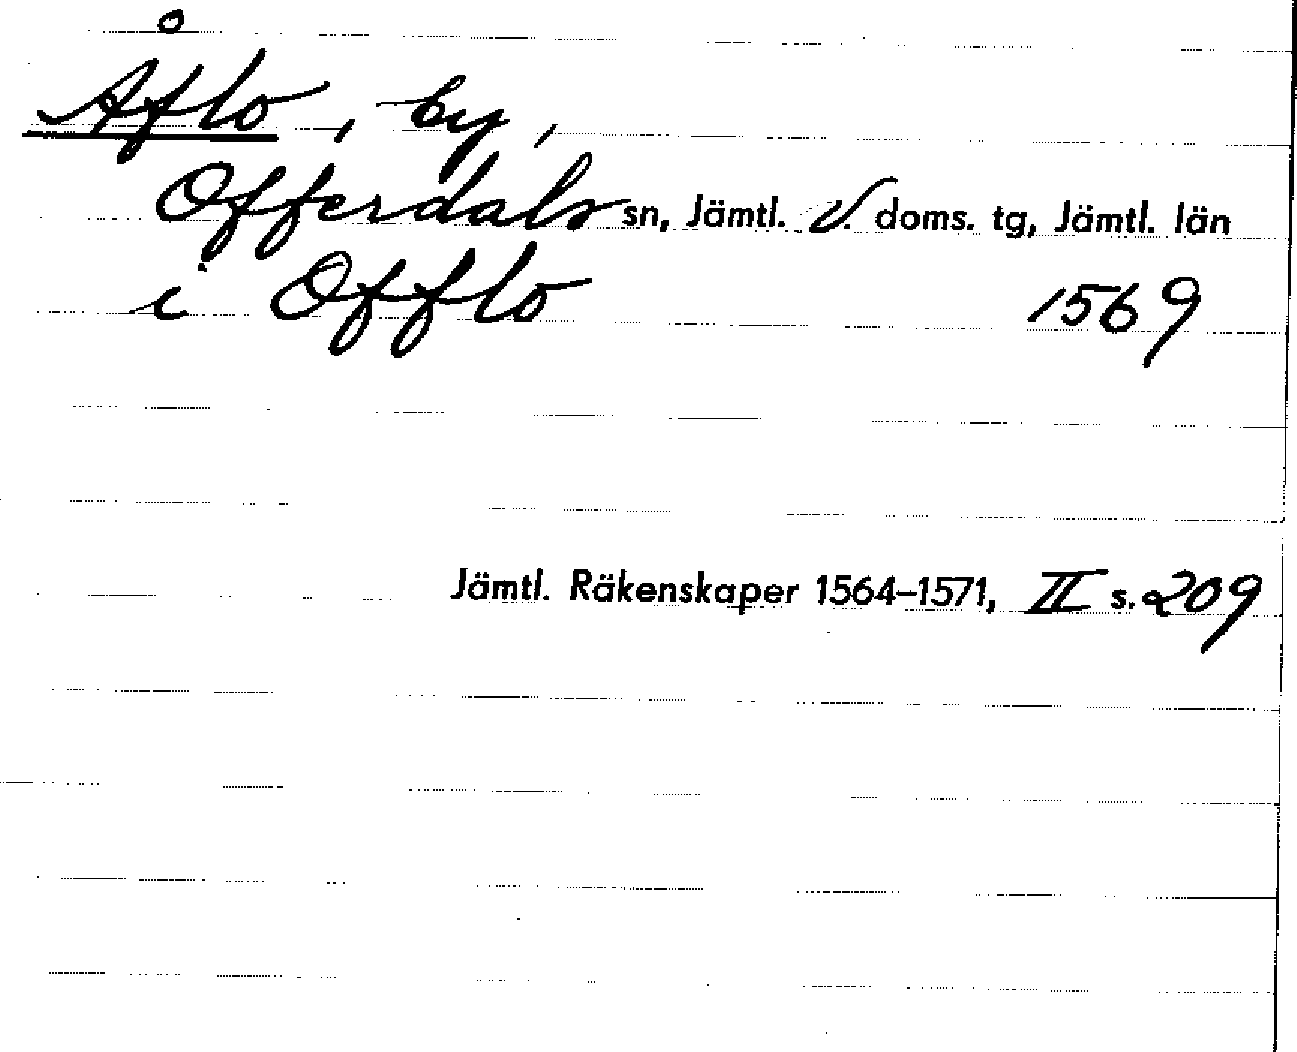 Åflo, by,
Offerdals sn, Jämtl. v. doms. tg, Jämtl. län
i Offlo 1569
Jämtl. Räkenskaper 1564–1571, II s. 209